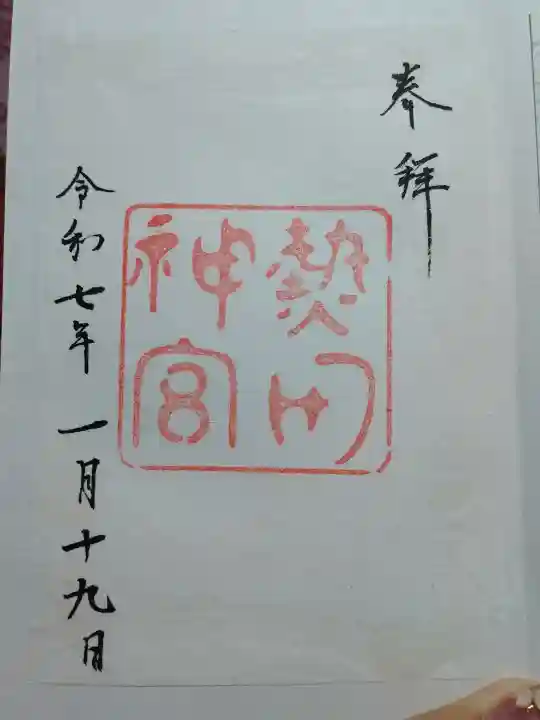 奉拜
熱田
神宮
令和七年一月十九日